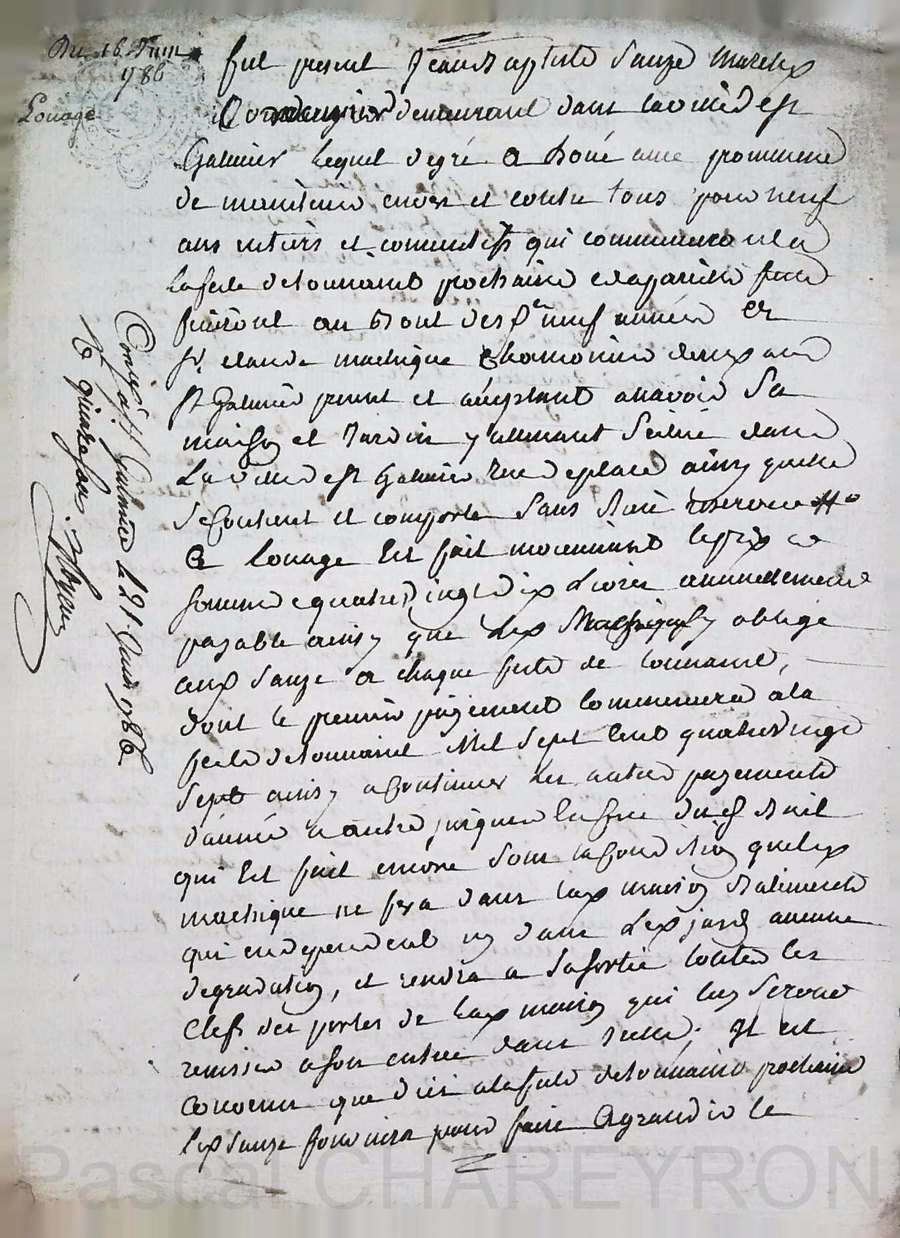 Du 16 Juin
1786
Louage
fut present Jean Baptiste Sauze Marchx
Cordonnier demeurant dans la ville de st
Galmier lequel de gré a Loué avec promesse
de maintenir envers et contre tous pour neuf
ans entiers et consecutifs qui commenceront a
la fete de toussaint prochaine et a pareille fete
finiront au bout desd. neuf années a
sr. claude machique demeurant aud
st Galmier present et acceptant a savoir sa
maison et Jardin y attenant scitué dans
la ville de st Galmier rue de place ainsy qu'elle
se contient et comporte sans Rien reserver
Ce louage Est fait moyennant le prix et
somme de quatre vingt dix livres annuellement
payable ainsy que led. obligé
aud. Sauze a chaque fete de toussaint,
dont le premier payement commencera a la
fete de toussaint Mil Sept Cent quatre vingt
Sept ainsy a Continuer les autres payements
d'année a autre jusques a la fin dud. Bail
qui Est fait encore sous la condition que led.
machique ne fera dans lad. maison Batiments
qui en dependent ny dans led. jardin aucune
degradation, et rendra a sa sortie toutes les
clefs des portes de lad. maison qui luy seront
remises a son entrée dans Icelle; Il est
convenu que d'icy a la fete de toussaint prochaine
led. sauze fournira pour faire agrandir le
Con. à St Galmier le 21 Juin 1786
R quinze sous.
Pascal CHAREYRON